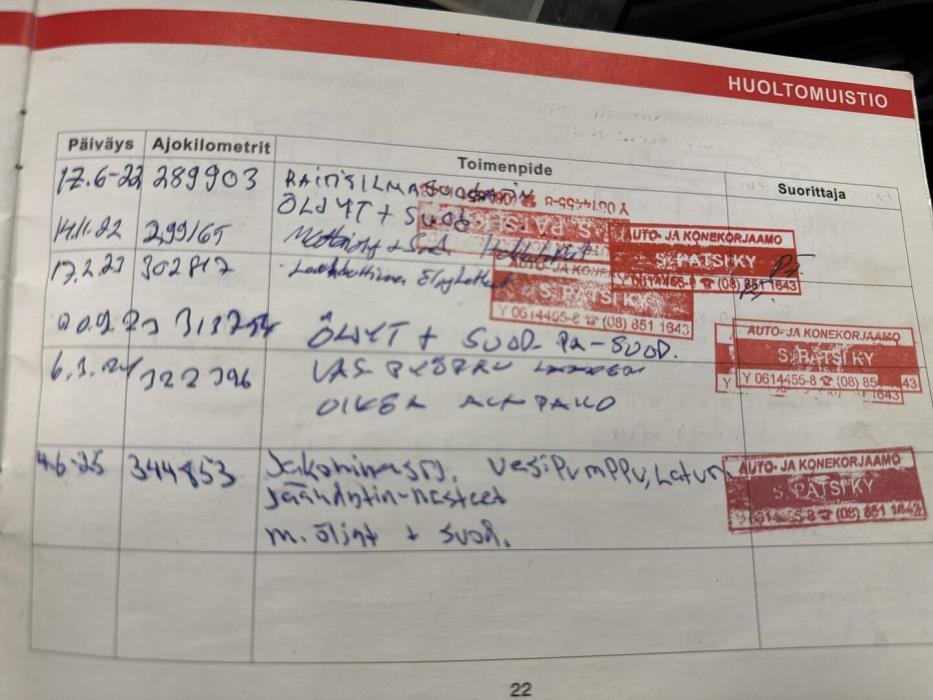 HUOLTOMUISTIO
Päiväys Ajokilometrit Toimenpide Suorittaja
17.6-22 289903 RAITISILMASUODATIN
ÖLJYT + SUOD.
14.11.22 299165
AUTO- JA KONEKORJAAMO
S. PATSI KY
Y 0614455-8 ☎ (08) 851 1643
17.2.23 302817
AUTO- JA KONEKORJAAMO
S. PATSI KY
Y 0614455-8 ☎ (08) 851 1643
313754 ÖLJYT + SUOD. PA-SUOD.
AUTO- JA KONEKORJAAMO
S. PATSI KY
Y 0614455-8 ☎ (08) 85 43
6.3.24 322396 VAS.
OIKEA ALAPALLO
4.6-25 344853 Jakohihnasrj, Vesipumppu, Laturi
Jäähdytin-nesteet
m. öljyt + suod.
AUTO- JA KONEKORJAAMO
S. PATSI KY
Y 0614455-8 ☎ (08) 851 1643
22